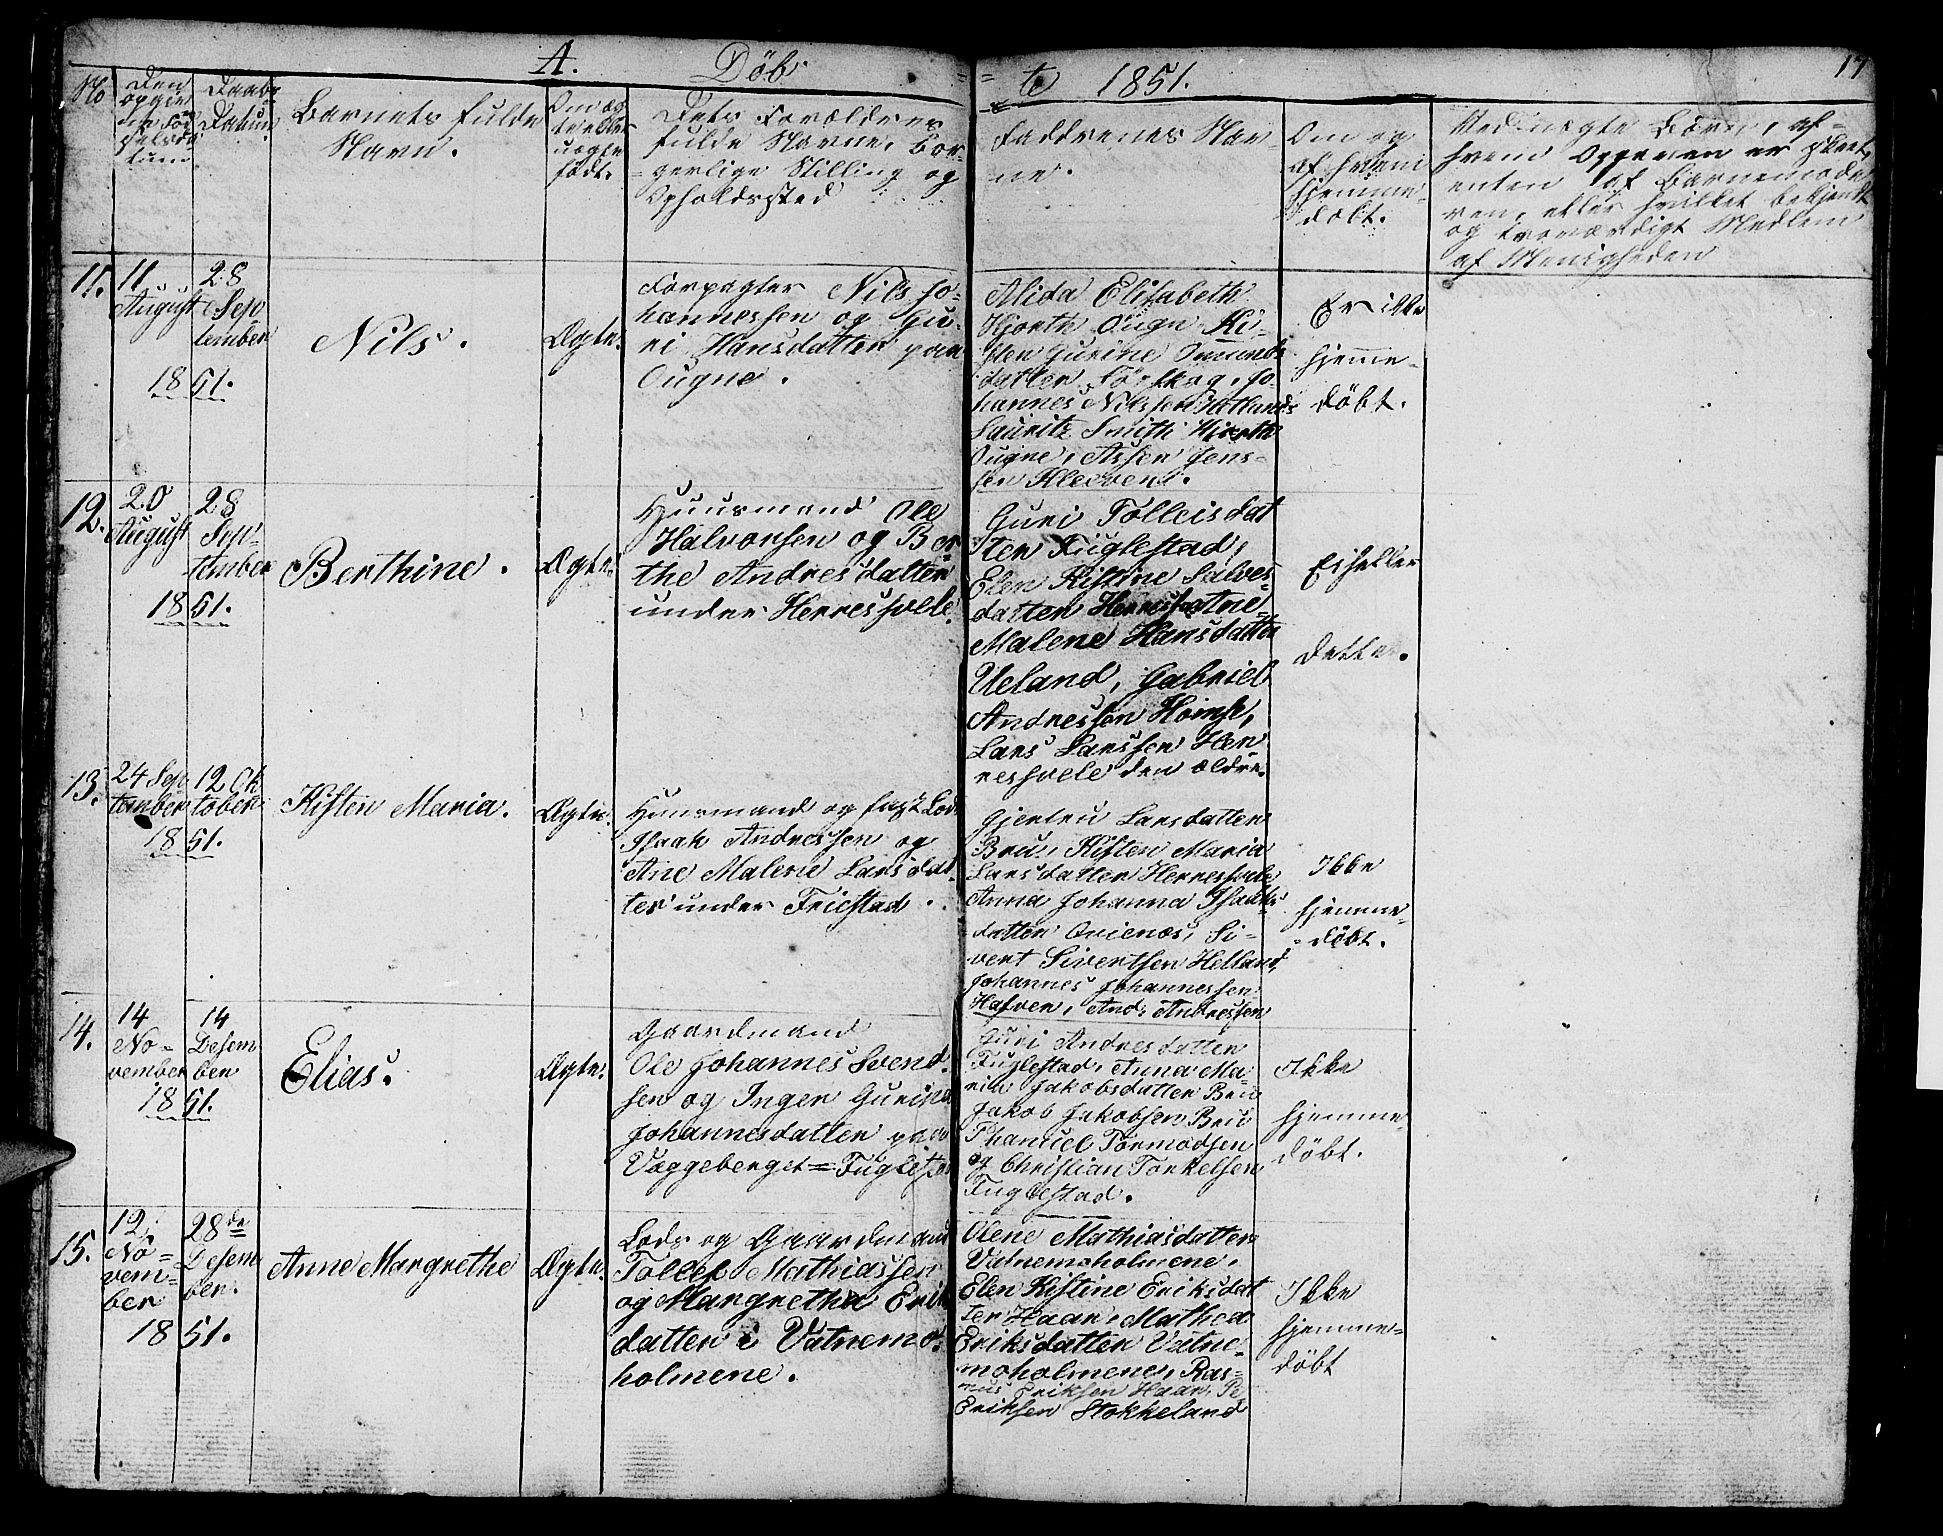 A. Døb= =te 1851. 17
No
Den
opgiv
ne Fød
selsda
tum
Daabs
Datum
Barnets fulde
Navn.
Om æg
te eller
uægte
født.
Dets Forældres
fulde Navne, Bor-
=gerlige Stilling og
Opholdssted
Faddrenes Nav-
ne.
Om og
af hvem
hjemme
døbt.
Ved uægte Børn, af
hvem Opgaven er skeet,
enten af Barnemode-
ren, eller hvilket bekjendt
og troværdigt Medlem
af Menigheden
11.
11
August
28
Sep
tember
1851.
Nils.
Ægte.
Forpagter Nils Jo-
hannessen og Gu-
ri Hansdatter paa
Ougne.
Alida Elisabeth
Hjorth Ougn, Ki-
sten Gurine Omunds
datter Førskog, Jo-
hannes Nilssen Hetlands
Lauritz Smith Hjorth
Ougne, Assser Jens-
sen
Er ikke
hjemme-
døbt.
12.
20
August
28
Sep-
tember
1851.
Berthine.
Ægte.
Huusmand Ole
Halvorsen og Ber-
the Andresdatter
under Herresvele.
Guri Tolleisdat
ter Fuglestad,
Elen Kistine Salves-
datter
Malene Hansdatter
Ueland, Gabriel
Andressen
Lars Larssen Her
resvele den ældre.
Ei heller
dette.
13.
24 Sep
tember
12 Ok
tober
1851.
Kisten Maria.
Ægte.
Huusmand og fast Lods
Isaak Andressen og
Ane Malene Larsdat
ter under Friestad.
Gjertru Larsdatter
Bru, Kisten Maria
Larsdatter Herresvele
Anna Johanna Isaaks
datter Qvienæs, Si-
vert Sivertsen Helland,
Johannes Johannessen
Hafven, And: Andressen
Ikke
hjemme-
=døbt.
14.
14
No-
vember
14
Desem
ber
1851.
Elias.
Ægte.
Gaardmand
Ole Johannes Svend-
sen og Inger Gurine
Johannesdatter paa
Væggeberget=Fuglestad
Guri Andresdatter
Fuglestad, Anna Ma-
ria Jakobsdatter Bru
Jakob Jakobsen Bru
Phanuel Tormodsen
og Christian Torkelsen
Fuglestad.
Ikke
hjemme
døbt.
15.
12.
No=
vem=
ber
28de
Desem
ber.
1851.
Anne Margrethe
Ægte.
Lods og Gaardmand
Tollef Mathiassen
og Margretha Erik
datter i Vatnemo-
holmene.
Olene Mathiasdatter
Vatnemoholmene,
Elen Kistine Eriksdat
ter Haar, Mathea
Eriksdatter Vatne-
moholmene, Ras-
mus Eriksen Haar, Pe
Eriksen Stokkeland
Ikke
hjemme=
døbt